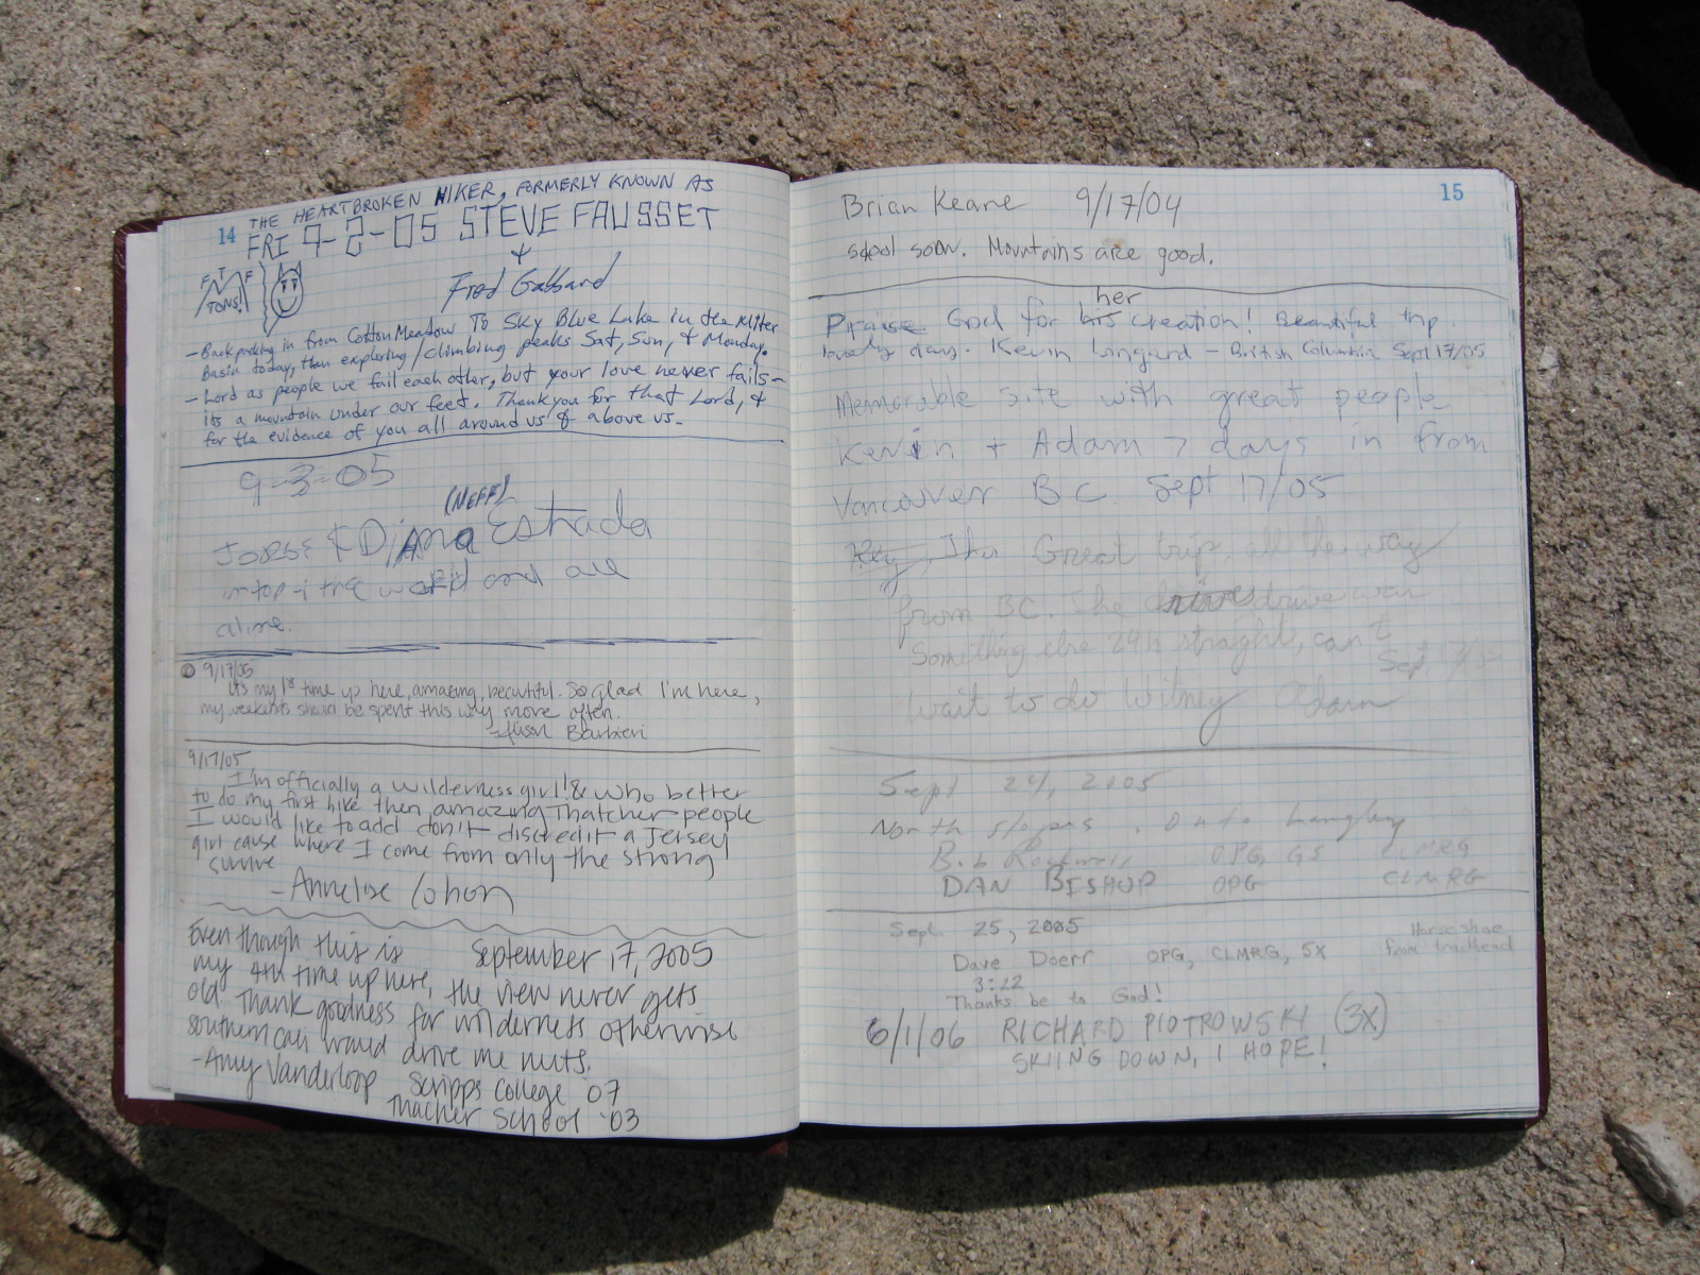 14
THE HEARTBROKEN HIKER, FORMERLY KNOWN AS
FRI 9-2-05 STEVE FAUSSET
+
F T F
TONS!
Fred Gabbard
- Backpacking in from Cotton Meadow To Sky Blue Lake in the Miter
Basin today, then exploring/climbing peaks Sat, Sun, & Monday.
- Lord as people we fail each other, but your love never fails -
its a mountain under our feet. Thank you for that Lord, &
for the evidence of you all around us & above us.
9-3-05
(NEFF)
& Diana Estrada
world and are
alive.
9/17/05
It's my 1st time up here, amazing, beautiful. So glad I'm here,
my weekends should be spent this way more often.
Barbieri
9/17/05
I'm officially a wilderness girl! & who better
to do my first hike then amazing Thatcher people
I would like to add don't discredit a Jersey
girl cause where I come from only the strong
survive
- Annelise Cohon
Even though this is September 17, 2005
my 4th time up here, the view never gets
old. Thank goodness for wilderness otherwise
southern cali would drive me nuts.
- Amy Vanderloop Scripps College '07
Thacher School '03
15
Brian Keane 9/17/04
soon. Mountains are good.
her
Praise God for his creation! Beautiful trip
lovely days. Kevin - British Columbia Sept 17/05
Memorable site with great people
Kevin + Adam 7 days in from
Vancouver B C. Sept 17/05
Great trip, all the way
from BC. The drive was
Something else 24h straight, can't
wait to do Witney Adam
Sept 24, 2005
North slopes. Onto Langley
Bob Rockwell OPG, GS CLMRG
DAN BISHOP OPG CLMRG
Sept. 25, 2005 Horseshoe
Dave Doerr OPG, CLMRG, 5X from trailhead
3:12
Thanks be to God!
6/1/06 RICHARD PIOTROWSKI (3X)
SKIING DOWN, I HOPE!